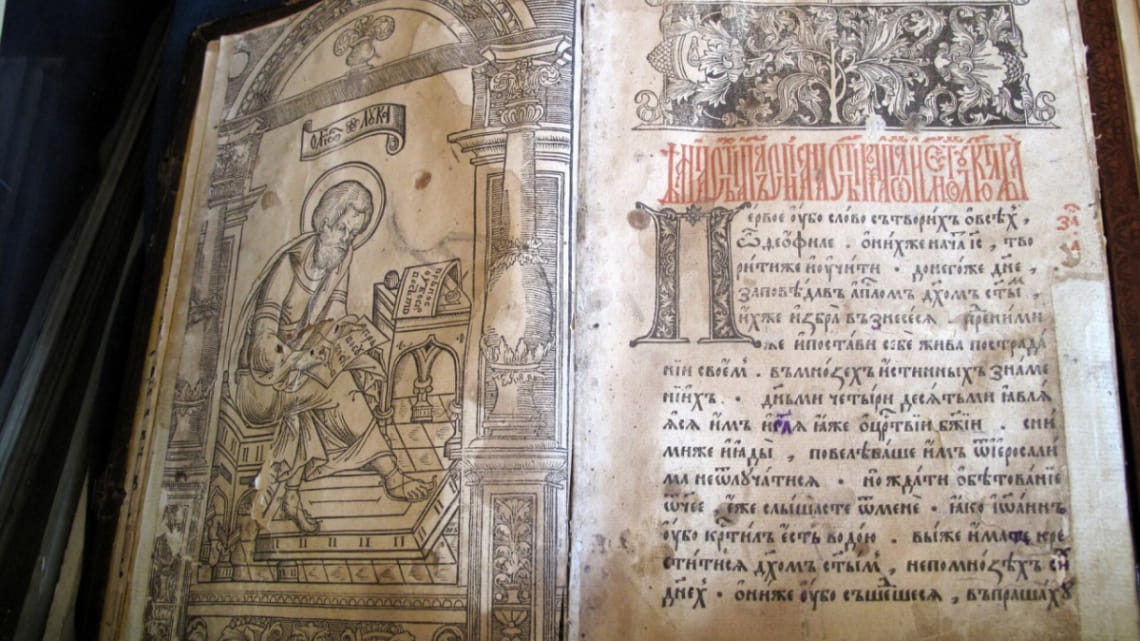 ЛꙊКА
Первое ᲂу҆бо сло́во сътвори́хъ ѡ҆всѣ́хъ,
ѽ деѻ҆́филе . ѻ҆ни́хже нача́ і҆с, тво
ри́тиже и҆ ᲂу҆чи́ти · донего́же дн҃е,
заповѣ́давъ а҆пⷭ҇ломъ дх҃омъ ст҃ы́м,
и҆́хже и҆збра̀ възнесе́сѧ . пренⸯи́ми
же и҆ поста́ви себѐ жи́ва пострада́
нїи свое́мъ . въмно́зѣхъ и҆́стинныхъ зна́ме
нїихъ . дн҃ьми четы́ридесѧтьми ꙗ҆влѧ́
ѧсѧ и҆̀мъ и҆ гл҃ѧ ꙗ҆́же ѡ҆црⷭ҇твїи бж҃їи . сни́
миже и҆ ꙗ҆ды̀ , повелѣва́ше и҆̀мъ ѿ і҆еросали́
ма неѿлуча́тисѧ . но жда́ти ѡ҆бѣтова́нїе
ѿч҃ее , є҆́же слы́шасте ѿменѐ . ꙗ҆́ко і҆ѡа́ннъ
ᲂу҆́бо крⷭ҇ти́лъ є҆́сть водо́ю . вы́же и҆́мате кре
сти́тисѧ дх҃омъ ст҃ы́мъ , непомно́зѣхъ си́хъ
дн҃ехъ . ѻ҆ни́же ᲂу҆́бо съше́дшесѧ , въпраша́хꙋ